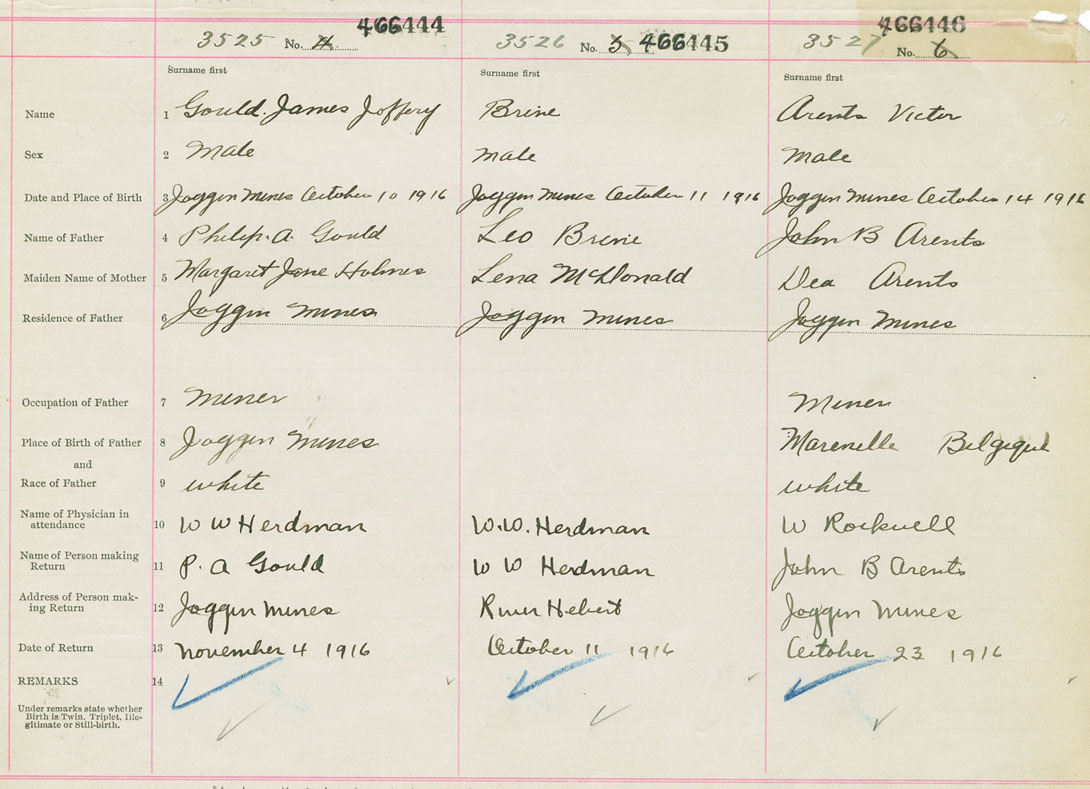 3525 No. 4 466444
3526 No. 5 466445
3527 No. 6 466446
Surname first Surname first Surname first
Name 1 Gould. James Joffery Brine Arents Victor
Sex 2 Male male Male
Date and Place of Birth 3 Joggin Mines October 10 1916 Joggin Mines October 11 1916 Joggin Mines October 14 1916
Name of Father 4 Philip. A. Gould Leo Brine John B Arents
Maiden Name of Mother 5 Margaret Jane Holmes Lena McDonald Dea Arents
Residence of Father 6 Joggin Mines Joggin Mines Joggin Mines
Occupation of Father 7 Miner Miner
Place of Birth of Father 8 Joggin Mines Marcinelle Belgique
and
Race of Father 9 white white
Name of Physician in
attendance 10 W W Herdman W.W. Herdman W Rockwell
Name of Person making
Return 11 P. A Gould W W Herdman John B Arents
Address of Person mak-
ing Return 12 Joggin Mines River Hebert Joggin Mines
Date of Return 13 November 4 1916 October 11 1916 October 23 1916
REMARKS 14
Under remarks state whether
Birth is Twin, Triplet, Ille-
gitimate or Still-birth.